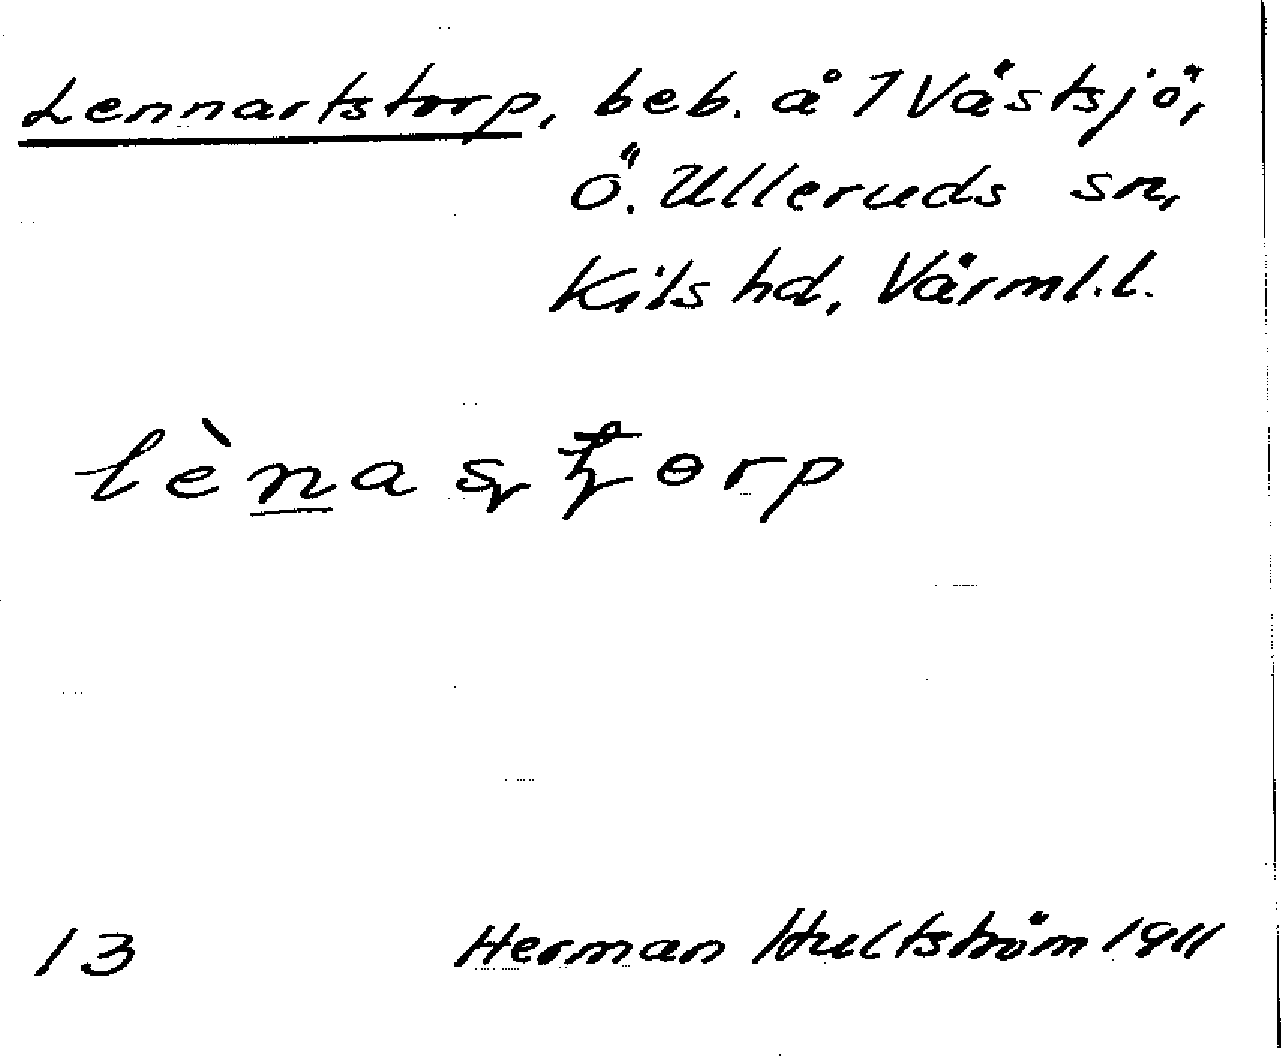 Lennartstorp, beb. å 7 Västsjö,
Ö. Ulleruds sn,
Kils hd, Värml.l.
lèna
13 Herman Hultström 1911